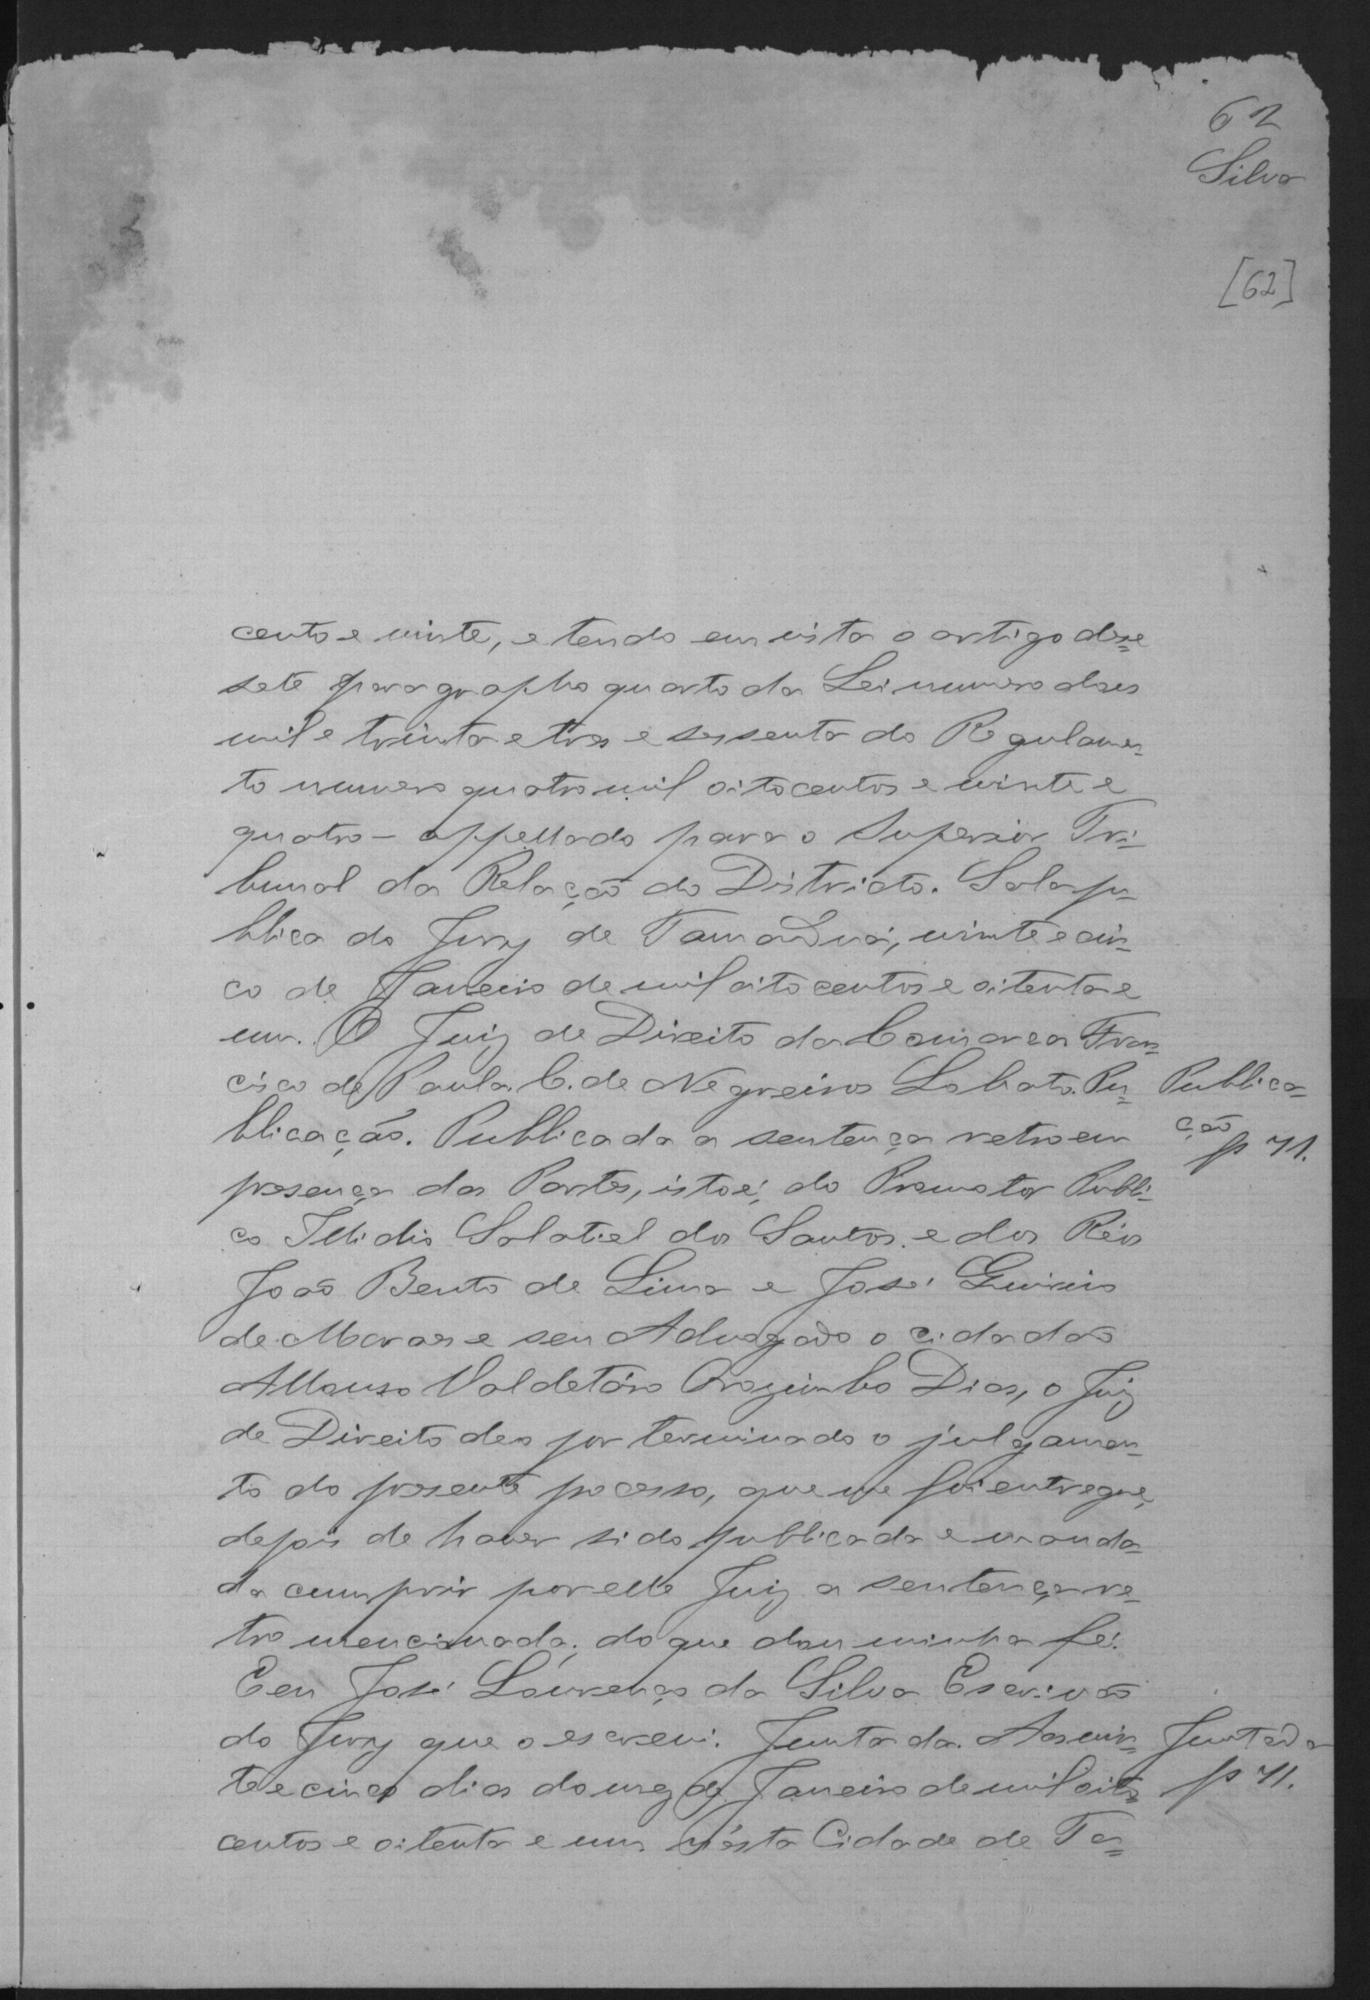 62
Silva
[62]
cento e vinte, e tendo em vista o artigo deze=
sete paragrapho quarto da Lei numero dois
mil e trinta e tres e sessenta do Regulamen=
to numero quatro mil oitocentos e vinte e
quatro – appellado para o Superior Tri=
bunal da Relação do Districto. Sala pu=
blica do Jury de Tamanduá, vinte e cin=
co de Janeiro de mil oitocentos e oitenta e
um. O Juiz de Direito da Comarca Fran=
cisco de Paula C. de Negreiros Lobato. Pu=
Publica=
ção
p 71.
blicação. Publicada a sentença retro em
presença das Partes, isto é, do Promotor Publi=
co Illidio Salatiel dos Santos, e dos Réos
João Bento de Lima e José
de Moraes e seu Advogado o cidadão
Valdetáro Orozimbo Dias, o Juiz
de Direito deo por terminado o julgamen=
to do presente pocesso, que me foi entregue,
depois de haver sido publicada e manda=
da cumprir por elle Juiz a sentença re=
tro mencionada; do que dou minha fé.
Eeu José Lourenço da Silva Escrivão
do Jury que o escrevi. Juntada. Aos vin=
Juntada
p 71.
te e cinco dias do mez de Janeiro de mil oito=
centos e oitenta e um n'ésta Cidade de Ta=